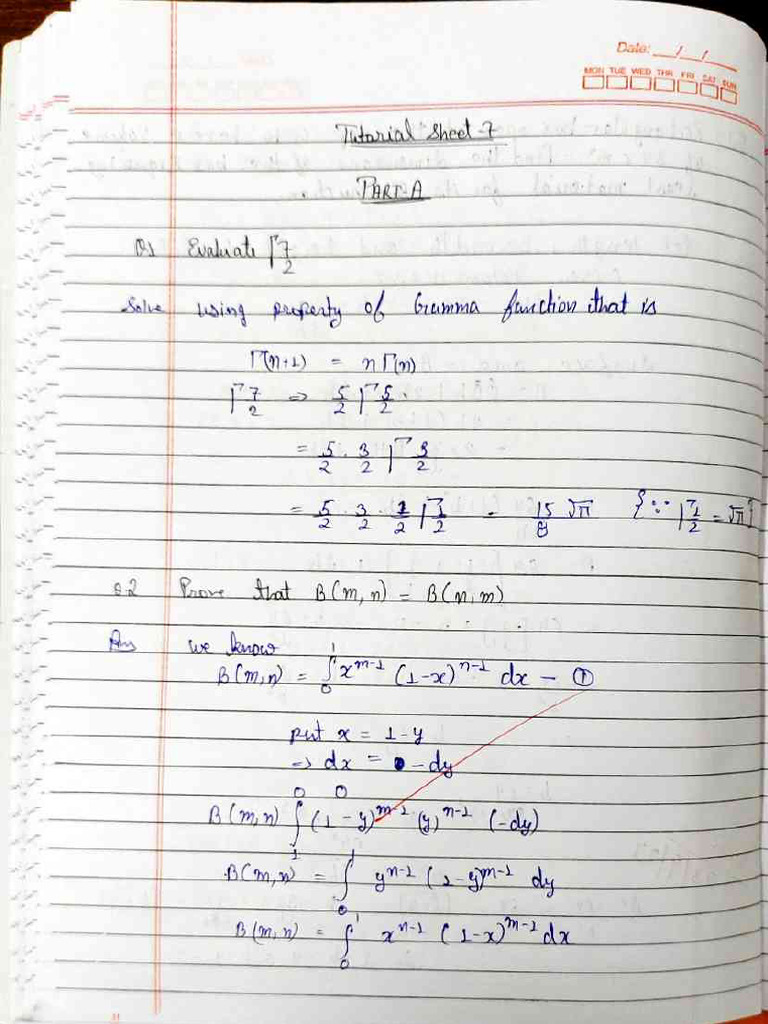 Date: __/__/__
MON TUE WED THR FRI SAT SUN
Tutorial Sheet-7
PART-A
Q1 Evaluate Γ7/2
Solve using property of Gamma function that is
Γ(n+1) = nΓ(n)
Γ7/2 ⇒ 5/2 Γ5/2
= 5/2 · 3/2 Γ3/2
= 5/2 · 3/2 · 1/2 Γ1/2 = 15/8 √π {∵ Γ1/2 = √π}
Q.2 Prove that B(m,n) = B(n,m)
Ans we know
B(m,n) = ∫₀¹ x^{m-1} (1-x)^{n-1} dx — ①
put x = 1-y
⇒ dx = -dy
B(m,n) ∫₁⁰ (1-y)^{m-1} (y)^{n-1} (-dy)
B(m,n) = ∫₀¹ y^{n-1} (1-y)^{m-1} dy
B(m,n) = ∫₀¹ x^{n-1} (1-x)^{m-1} dx